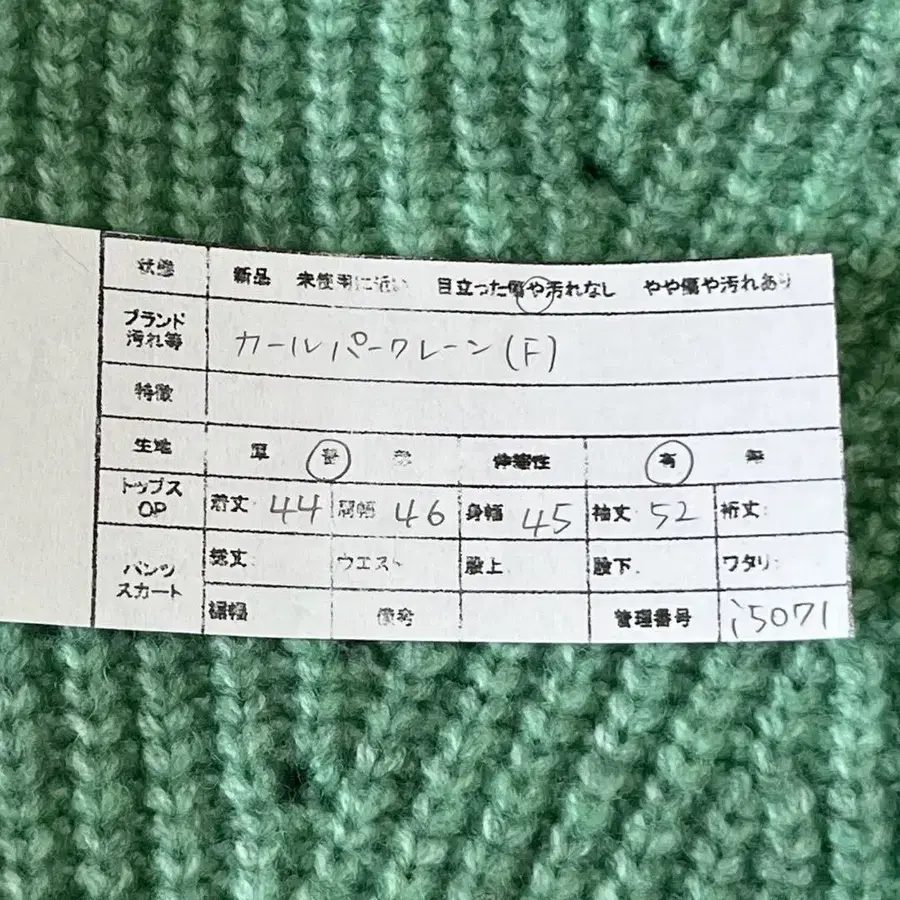 状態 新品 未使用に近い 目立った傷や汚れなし やや傷や汚れあり
ブランド
汚れ等 カールパークレーン(F)
特徴
生地 厚 普 伸縮性 有 無
トップス
OP 着丈: 44 肩幅 46 身幅 45 袖丈: 52 裄丈:
パンツ
スカート 総丈: ウエスト 股上: 股下: ワタリ:
裾幅 備考 管理番号 i5071